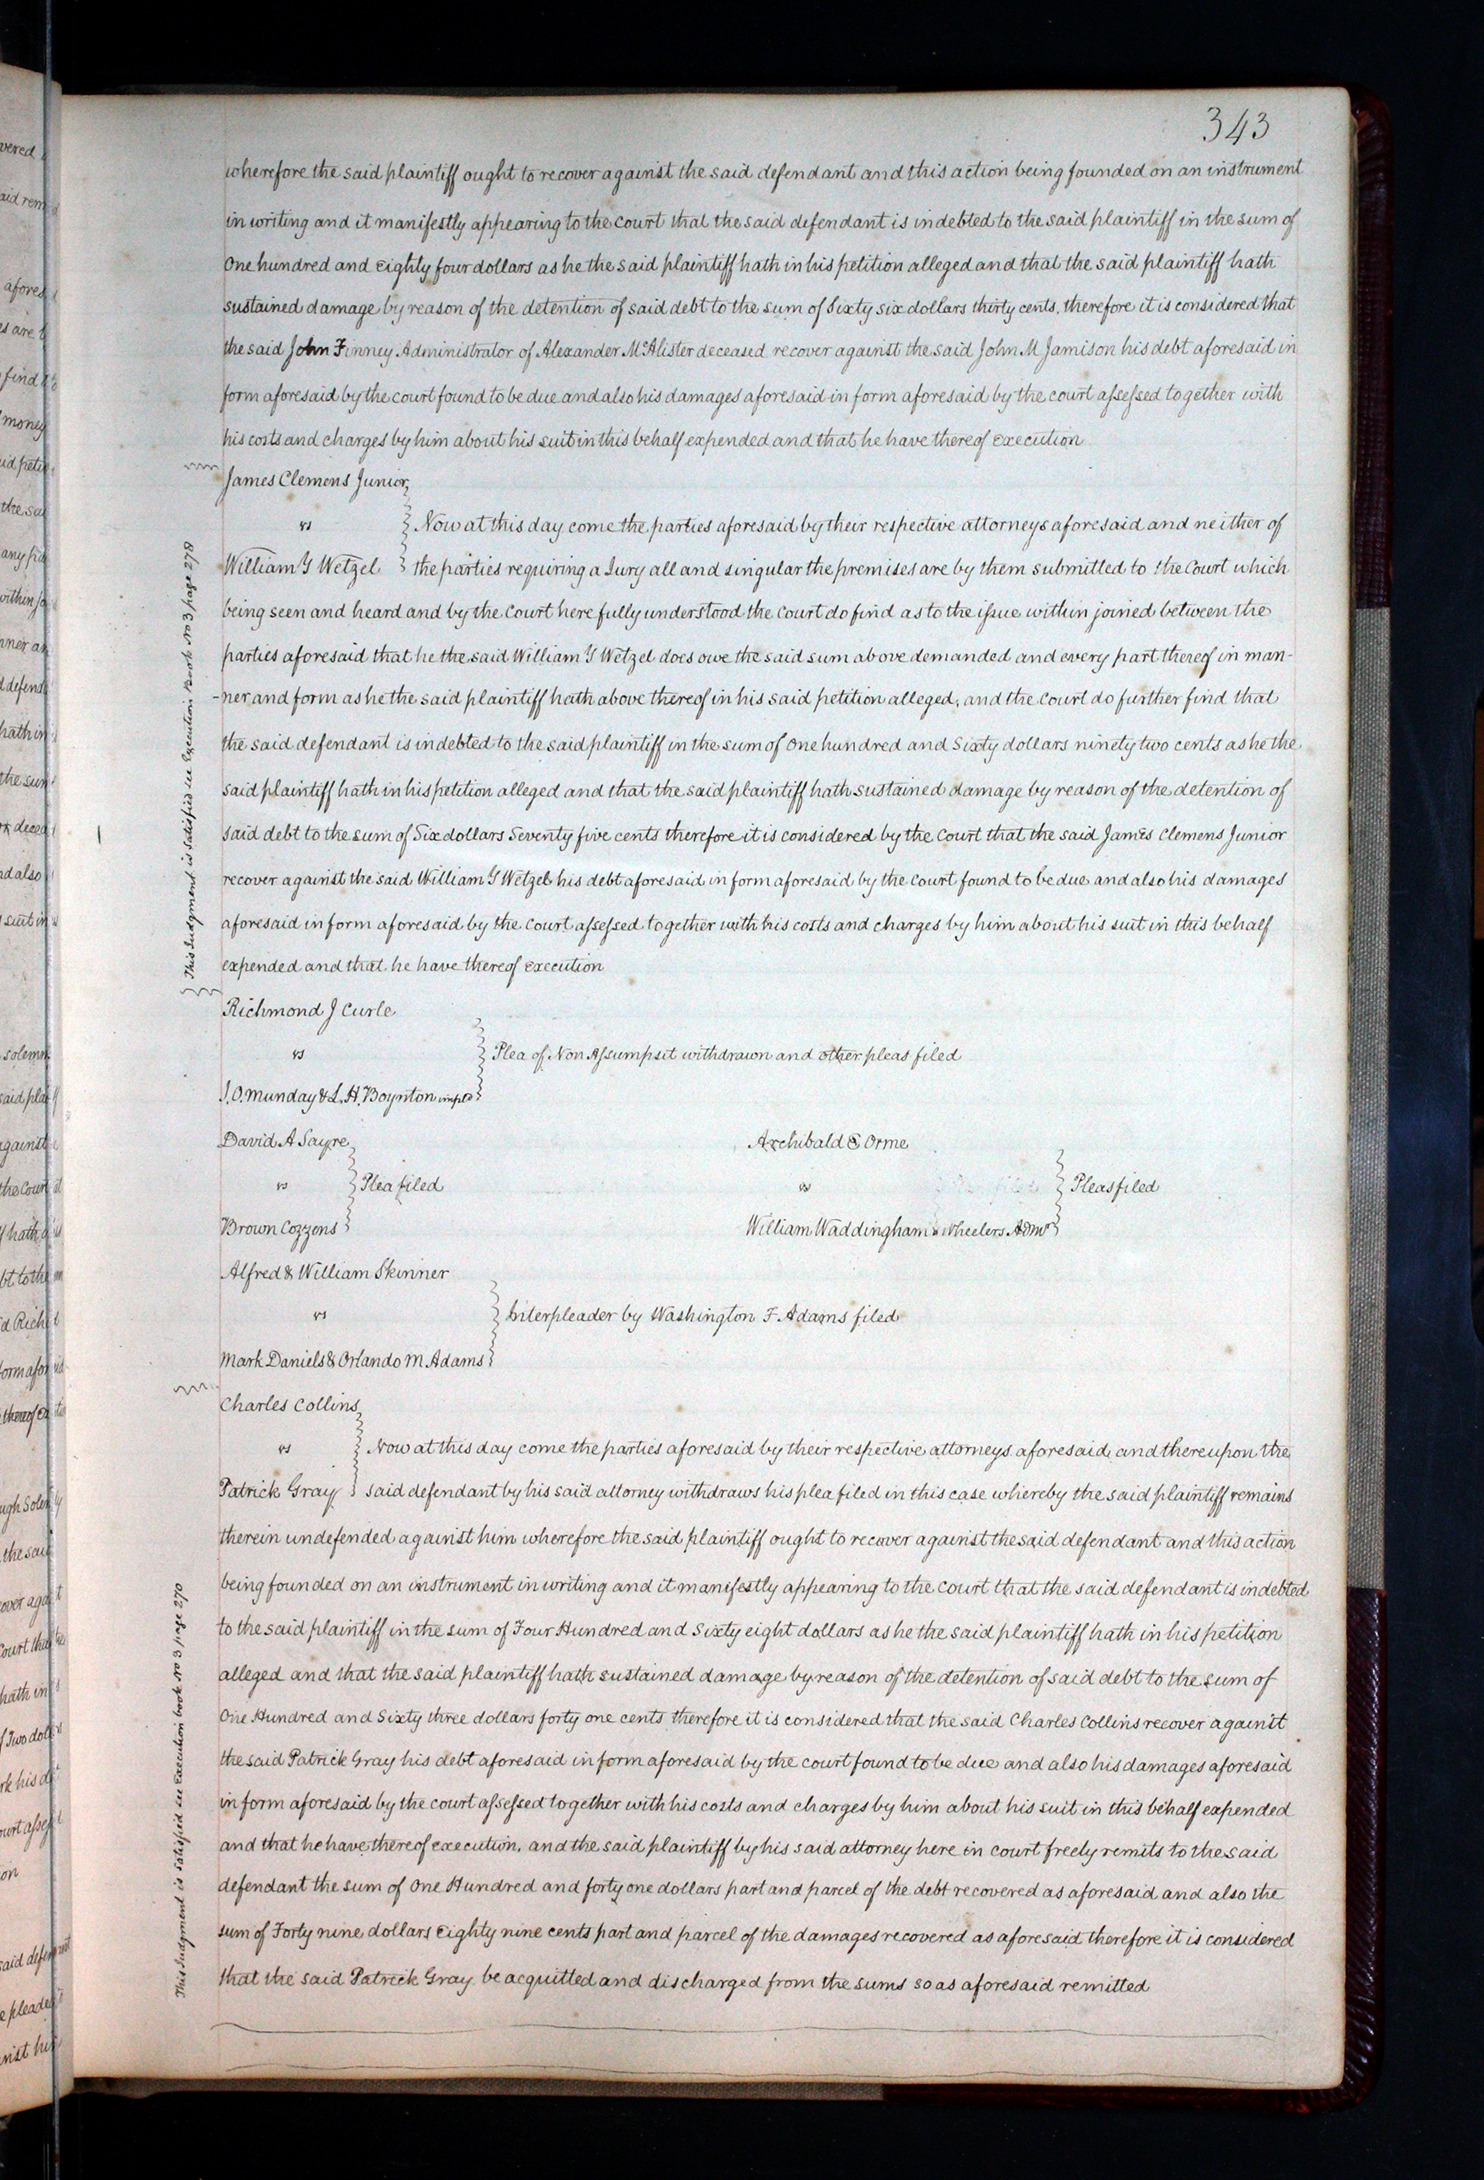 343
wherefore the said plaintiff ought to recover against the said defendant and this action being founded on an instrument
in writing and it manifestly appearing to the court that the said defendant is indebted to the said plaintiff in the sum of
One hundred and Eighty four dollars as he the said plaintiff hath in his petition alleged and that the said plaintiff hath
sustained damage by reason of the detention of said debt to the sum of Sixty six dollars thirty cents, therefore it is considered that
the said John Finney Administrator of Alexander McAlister deceased recover against the said John M Jamison his debt aforesaid in
form aforesaid by the court found to be due and also his damages aforesaid in form aforesaid by the court assessed together with
his costs and charges by him about his suit in this behalf expended and that he have thereof execution
James Clemens Junior
vs
Now at this day come the parties aforesaid by their respective attorneys aforesaid and neither of
William Y Wetzel
the parties requiring a Jury all and singular the premises are by them submitted to the Court which
being seen and heard and by the Court here fully understood the Court do find as to the issue within joined between the
parties aforesaid that he the said William Y Wetzel does owe the said sum above demanded and every part thereof in man-
-ner and form as he the said plaintiff hath above thereof in his said petition alleged, and the Court do further find that
the said defendant is indebted to the said plaintiff in the sum of One hundred and Sixty dollars ninety two cents as he the
said plaintiff hath in his petition alleged and that the said plaintiff hath sustained damage by reason of the detention of
said debt to the sum of Six dollars Seventy five cents therefore it is considered by the Court that the said James Clemens Junior
recover against the said William Y Wetzel his debt aforesaid in form aforesaid by the Court found to be due and also his damages
aforesaid in form aforesaid by the Court assessed together with his costs and charges by him about his suit in this behalf
expended and that he have thereof execution
This Judgment is Satisfied see Execution Book No 3 page 278
Richmond J Curle
vs
Plea of Non Assumpsit withdrawn and other pleas filed
I. O. Munday & L. H. Boynton impld
David A Sayre
vs
Plea filed
Brown Cozzens
Archibald E Orme
vs
Pleas filed
William Waddingham Wheelers Admr
Alfred & William Skinner
vs
Interpleader by Washington F Adams filed
Mark Daniels & Orlando M Adams
Charles Collins
vs
Now at this day come the parties aforesaid by their respective attorneys aforesaid, and thereupon the
Patrick Gray
said defendant by his said attorney withdraws his plea filed in this case whereby the said plaintiff remains
therein undefended against him wherefore the said plaintiff ought to recover against the said defendant and this action
being founded on an instrument in writing and it manifestly appearing to the court that the said defendant is indebted
to the said plaintiff in the sum of Four Hundred and Sixty eight dollars as he the said plaintiff hath in his petition
alleged and that the said plaintiff hath sustained damage by reason of the detention of said debt to the sum of
One Hundred and Sixty three dollars forty one cents therefore it is considered that the said Charles Collins recover against
the said Patrick Gray his debt aforesaid in form aforesaid by the court found to be due and also his damages aforesaid
in form aforesaid by the court assessed together with his costs and charges by him about his suit in this behalf expended
and that he have thereof execution, and the said plaintiff by his said attorney here in court freely remits to the said
defendant the sum of One Hundred and forty one dollars part and parcel of the debt recovered as aforesaid and also the
sum of Forty nine dollars Eighty nine cents part and parcel of the damages recovered as aforesaid therefore it is considered
that the said Patrick Gray be acquitted and discharged from the sums so as aforesaid remitted
This Judgment is Satisfied see Execution book No 3 page 270